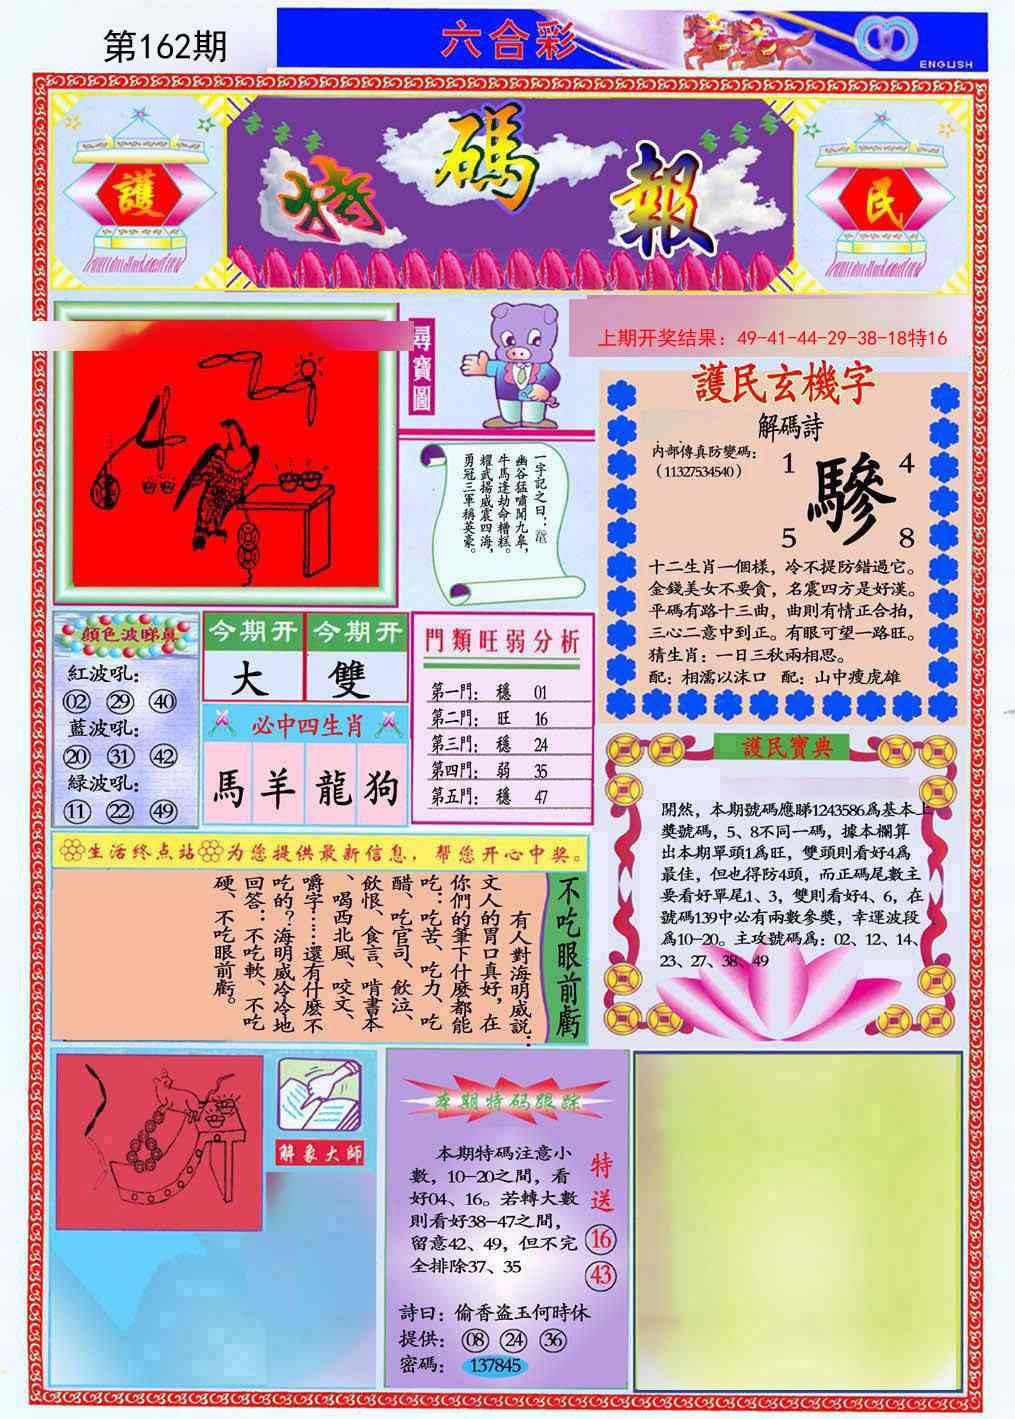 第162期
六合彩
ENGLISH
護
特碼報
民
尋寶圖
上期开奖结果：49-41-44-29-38-18特16
一字記之曰：
幽谷猛嘯聞九皋，
牛馬逢劫命糟糕。
耀武揚威震四海，
勇冠三軍稱英豪。
護民玄機字
解碼詩
內部傳真防變碼：
（11327534540）
1
4
驂
5
8
十二生肖一個樣，冷不提防錯過它。
金錢美女不要貪，名震四方是好漢。
平碼有路十三曲，曲則有情正合拍，
三心二意中到正。有眼可望一路旺。
猜生肖：一日三秋兩相思。
配：相濡以沫口 配：山中瘦虎雄
顏色波睇真
紅波吼：
02 29 40
藍波吼：
20 31 42
綠波吼：
11 22 49
今期开
大
今期开
雙
必中四生肖
馬 羊 龍 狗
門類旺弱分析
第一門： 穩 01
第二門： 旺 16
第三門： 穩 24
第四門： 弱 35
第五門： 穩 47
護民寶典
開然，本期號碼應睇1243586爲基本上
獎號碼，5、8不同一碼，據本欄算
出本期單頭1爲旺，雙頭則看好4爲
最佳，但也得防4頭，而正碼尾數主
要看好單尾1、3，雙則看好4、6，在
號碼139中必有兩數參獎，幸運波段
爲10-20。主攻號碼爲：02、12、14、
23、27、38、49
生活终点站 为您提供最新信息，帮您开心中奖。
不吃眼前虧
有人對海明威說：
文人的胃口真好，在
你們的筆下什麽都能
吃：吃苦、吃力、吃
醋、吃官司、飲泣、
飲恨、食言、啃書本
、喝西北風、咬文、
嚼字……還有什麽不
吃的？海明威冷冷地
回答：不吃軟、不吃
硬、不吃眼前虧。
解象大師
本期特码跟踪
本期特碼注意小
數，10-20之間，看
好04、16。若轉大數
則看好38-47之間，
留意42、49，但不完
全排除37、35
特送
16
43
詩曰：偷香盗玉何時休
提供： 08 24 36
密碼： 137845